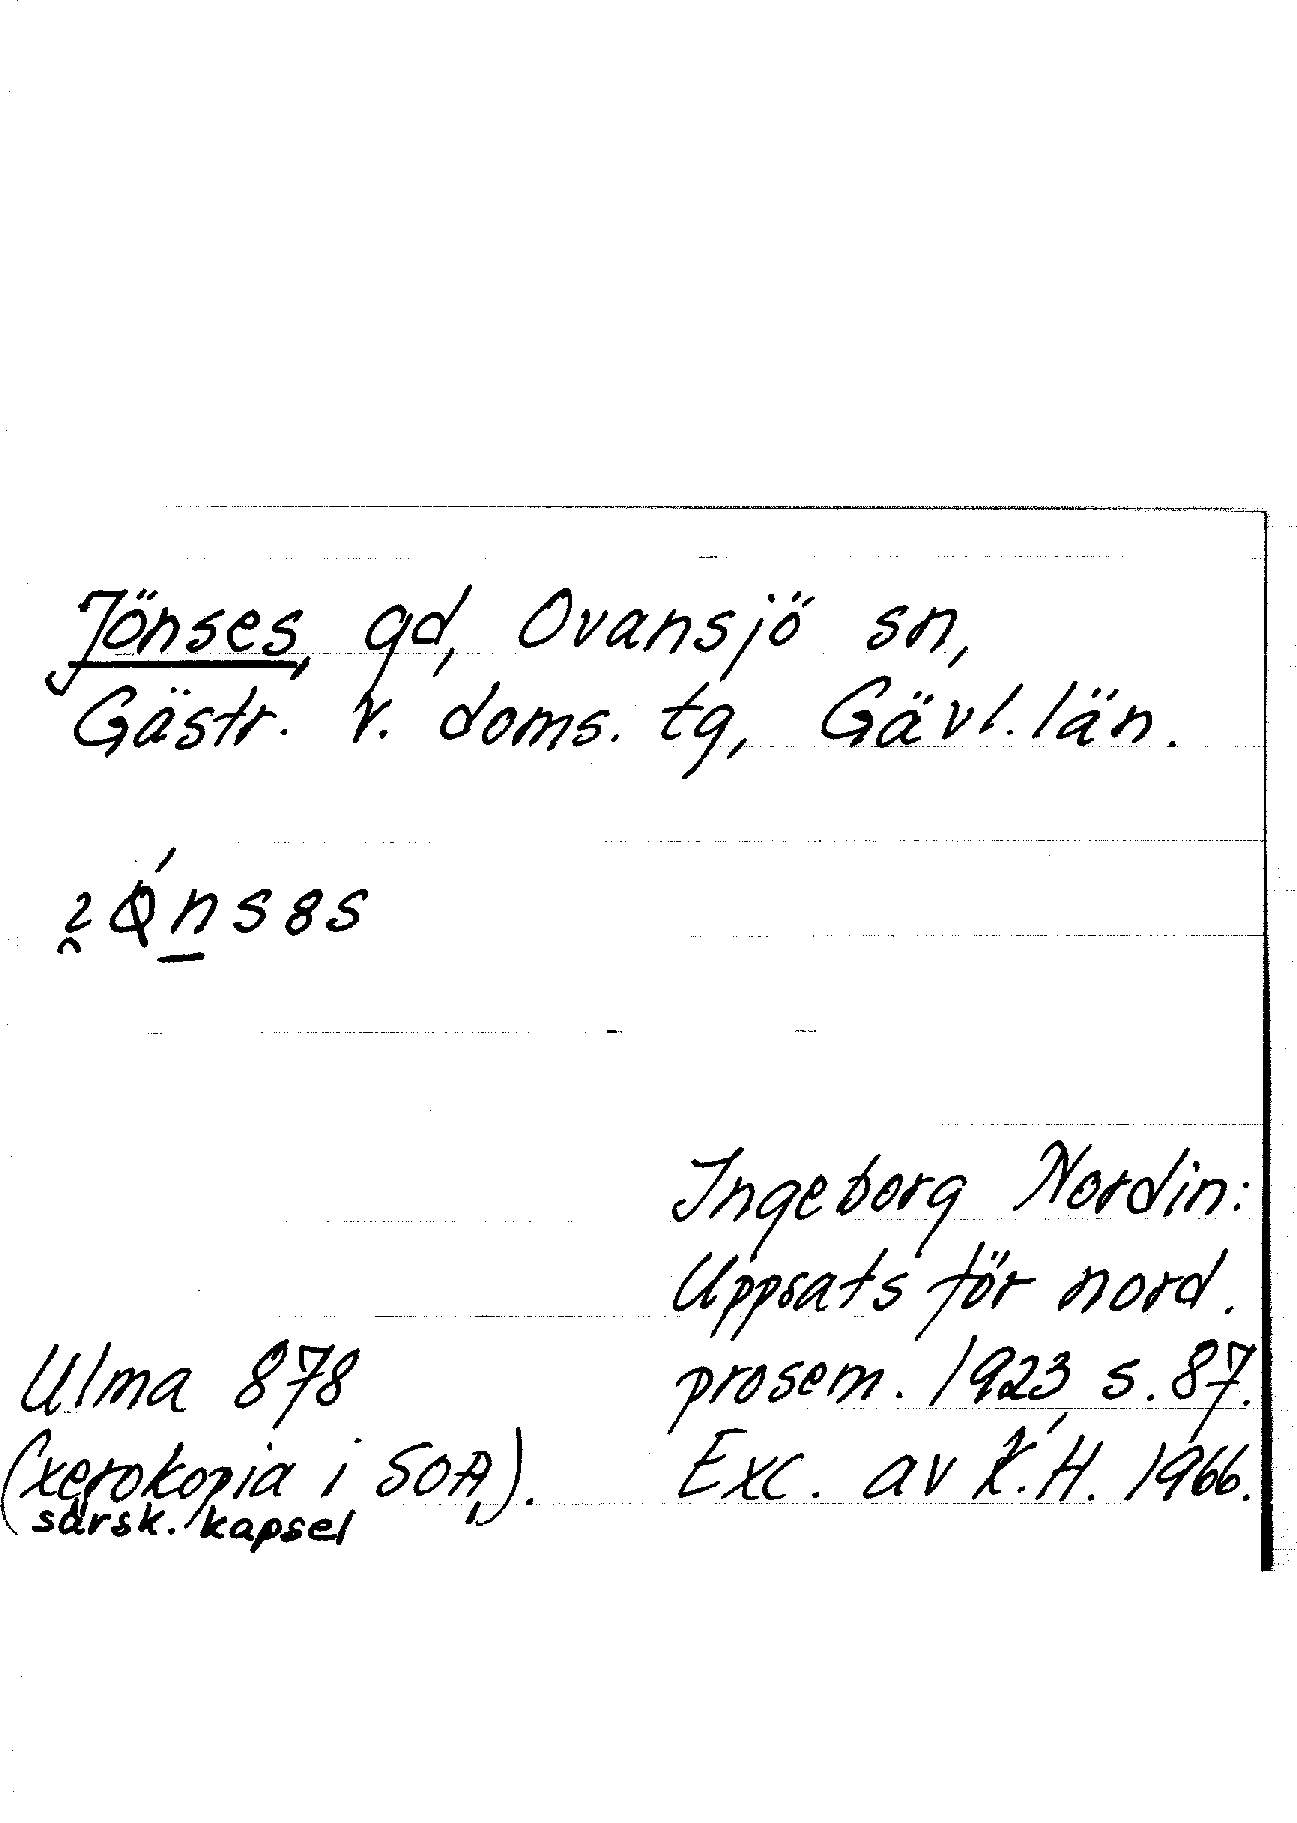 Jönses, gd, Ovansjö sn,
Gästr. v. doms. tg, Gävl. län.
Ingeborg Nordin:
Uppsats för nord.
prosem. 1923 s. 87.
Exc. av K.H. 1966.
Ulma 878
(xerokopia i SOA,).
särsk. kapsel